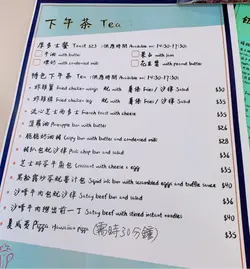 下午茶 Tea
厚多士餐 Toast $23 (供應時間 Available on 14:30-17:30)
牛油 with butter
果占 with jam
煉奶 with condensed milk
花生醬 with peanut butter
特色下午茶 Tea (供應時間 Available on 14:30-17:30)
炸雞翼 fried chicken wings 配 with 薯條 Fries / 沙律 Salad $30
炸雞髀 fried chicken leg 配 with 薯條 Fries / 沙律 Salad $35
法式芝士西多士 French toast with cheese
菠蘿油 Pineapple bun with butter $26
脆脆奶油豬 Crispy bun with butter and condensed milk $28
豬扒包配沙律 Pork chop bun and salad $36
芝士牛角包 Croissant with cheese & egg $35
with scrambled eggs and truffle sauce $40
沙嗲牛肉包配沙律 Satay beef bun and salad $36
沙嗲牛肉撈出前一丁 Satay beef with stired instant noodles $40
夏威夷 Pizza Hawaiian pizza (需時30分鐘) $35